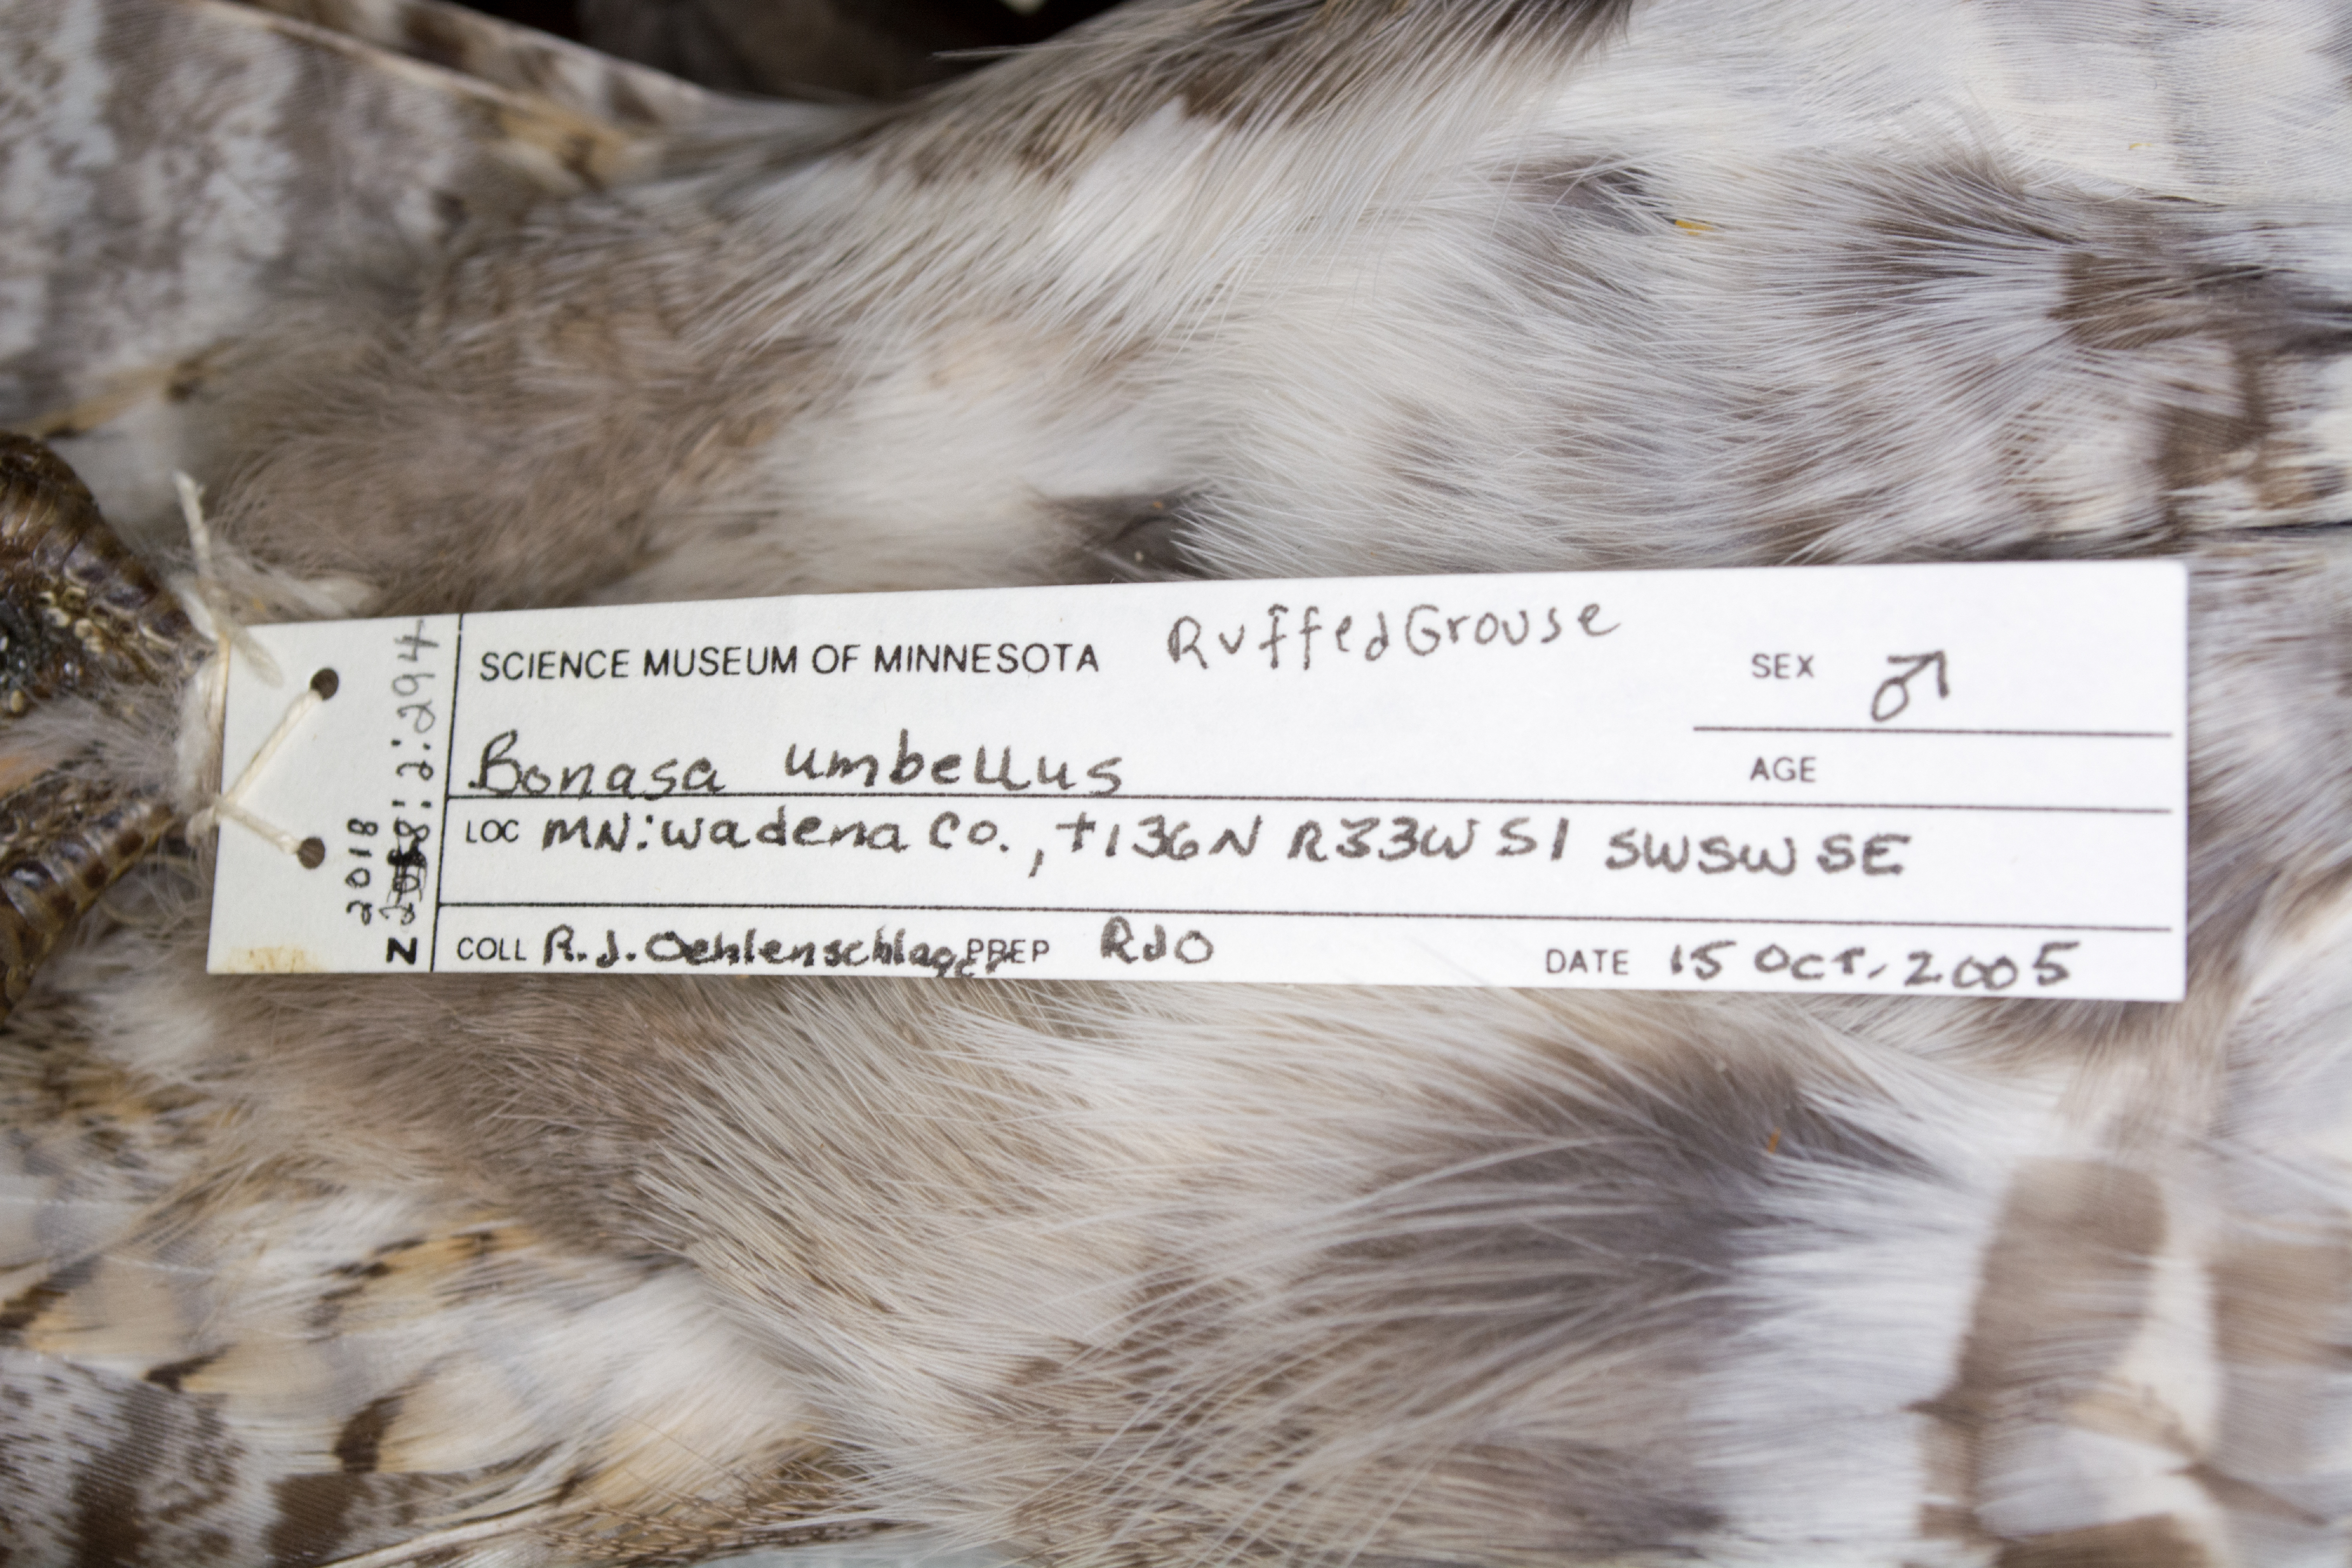 SCIENCE MUSEUM OF MINNESOTA Ruffed Grouse
SEX ♂
Bonasa umbellus
AGE
LOC MN: Wadena Co., T136N R33W S1 SWSWSE
COLL R.J. Oehlenschlager PREP RJO DATE 15 Oct. 2005
2018
Z :2:294